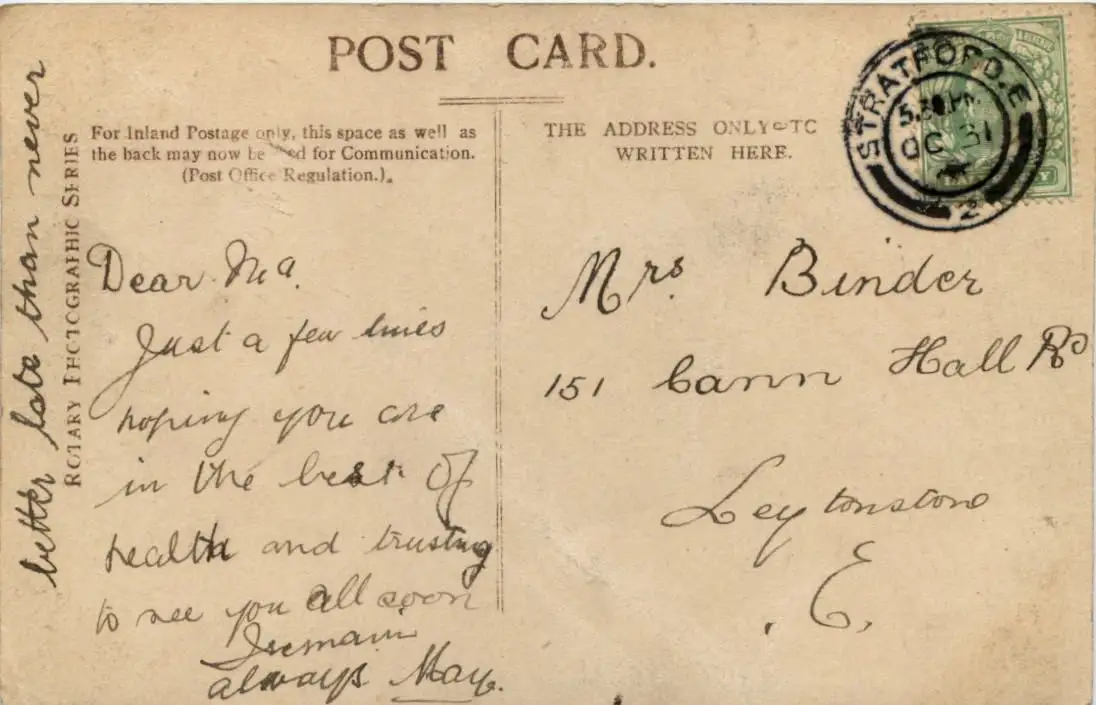 POST CARD.
For Inland Postage only, this space as well as
the back may now be used for Communication.
(Post Office Regulation.)
THE ADDRESS ONLY TO
WRITTEN HERE.
STRATFORD. E
5.30 PM
OC 31
2
ROTARY PHOTOGRAPHIC SERIES
better late than never
Dear Ma.
Just a few lines
hoping you are
in the best of
health and trusting
to see you all soon
I remain
always May.
Mrs. Binder
151 Cann Hall Rd
Leytonstone
E.